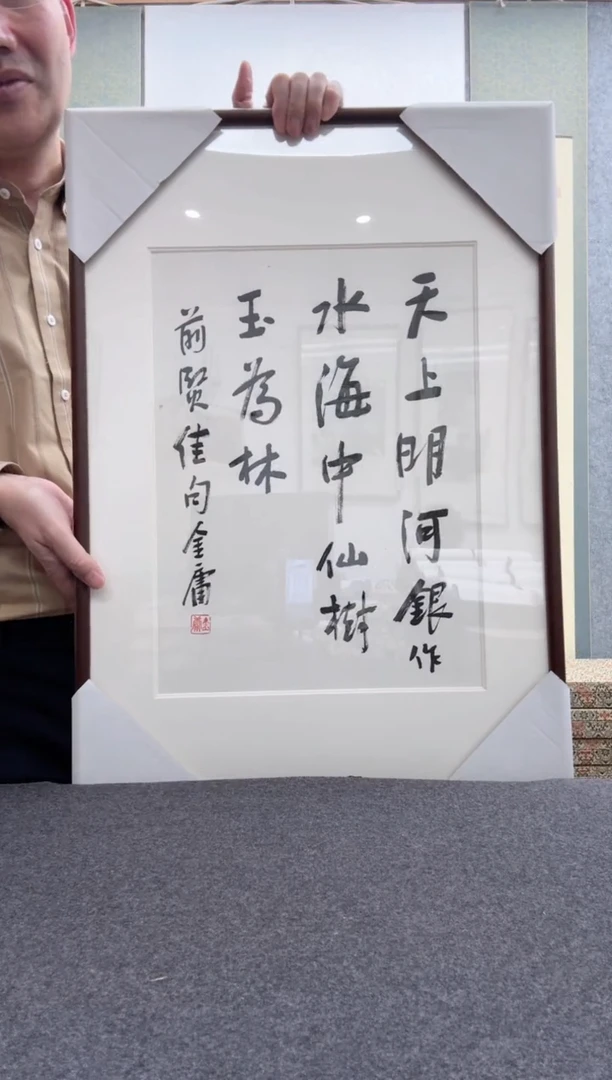 天上明河銀作
水海中仙樹
玉為林
前賢佳句金霤